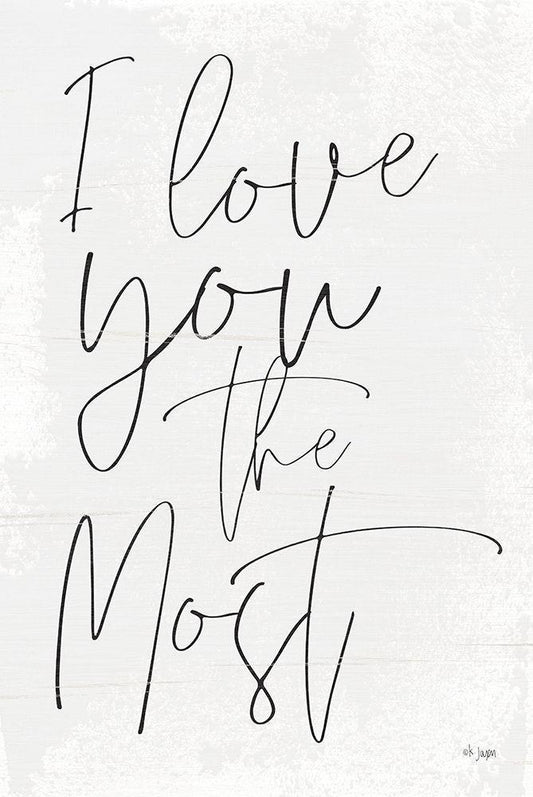 I love
you
the
Most